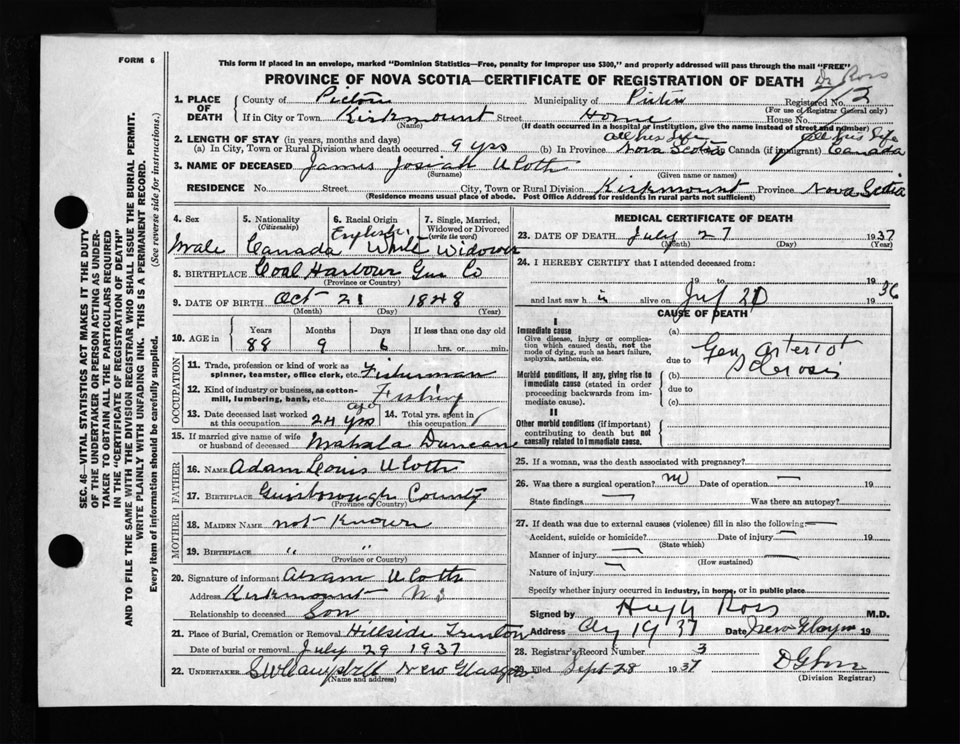 FORM 6
This form if placed in an envelope, marked "Dominion Statistics—Free, penalty for improper use $300," and properly addressed will pass through the mail "FREE"
PROVINCE OF NOVA SCOTIA—CERTIFICATE OF REGISTRATION OF DEATH Dr Ross
1. PLACE OF DEATH County of Pictou Municipality of Pictou Registered No. 13
(For use of Registrar General only)
If in City or Town Kirkmount Street Home House No.
(Name) (If death occurred in a hospital or institution, give the name instead of street and number)
2. LENGTH OF STAY (in years, months and days) All his Life All his Life
(a) In City, Town or Rural Division where death occurred 9 yrs (b) In Province Nova Scotia Canada (if immigrant) Canada
3. NAME OF DECEASED James Josiah Uloth
(Surname) (Given name or names)
RESIDENCE No. Street City, Town or Rural Division Kirkmount Province Nova Scotia
(Residence means usual place of abode. Post Office Address for residents in rural parts not sufficient)
4. Sex Male
5. Nationality (Citizenship) Canada
6. Racial Origin English White
7. Single, Married, Widowed or Divorced (write the word) Widower
8. BIRTHPLACE Coal Harbour Guy Co
(Province or Country)
9. DATE OF BIRTH Oct 21 1848
(Month) (Day) (Year)
10. AGE in Years 88 Months 9 Days 6 If less than one day old hrs. or min.
OCCUPATION
11. Trade, profession or kind of work as spinner, teamster, office clerk, etc. Fisherman
12. Kind of industry or business, as cotton-mill, lumbering, bank, etc. Fishing
13. Date deceased last worked at this occupation 24 yrs ago
14. Total yrs. spent in this occupation
15. If married give name of wife or husband of deceased Mahala Duncan
FATHER
16. NAME Adam Louis Uloth
17. BIRTHPLACE Guisborough County
(Province or Country)
MOTHER
18. MAIDEN NAME not Known
19. BIRTHPLACE " "
(Province or Country)
20. Signature of informant Uloth
Address Kirkmount N S
Relationship to deceased Son
21. Place of Burial, Cremation or Removal Hillside Trenton
Date of burial or removal July 29 1937
22. UNDERTAKER S W Campbell New Glasgow
(Name and address)
MEDICAL CERTIFICATE OF DEATH
23. DATE OF DEATH July 27 1937
(Month) (Day) (Year)
24. I HEREBY CERTIFY that I attended deceased from:
19 to 19
and last saw h im alive on 1936
CAUSE OF DEATH
I
Immediate cause
Give disease, injury or complication which caused death, not the mode of dying, such as heart failure, asphyxia, asthenia, etc.
Morbid conditions, if any, giving rise to immediate cause (stated in order proceeding backwards from immediate cause).
II
Other morbid conditions (if important) contributing to death but not causally related to immediate cause.
(a) Gen Arterio
due to Sclerosis
(b)
due to
(c)
25. If a woman, was the death associated with pregnancy?
26. Was there a surgical operation? no Date of operation — 19
State findings — Was there an autopsy?
27. If death was due to external causes (violence) fill in also the following:—
Accident, suicide or homicide? — Date of injury — 19
(State which)
Manner of injury — —
(How sustained)
Nature of injury —
Specify whether injury occurred in industry, in home, or in public place
Signed by Hugh Ross M.D.
Address Aug 19 37 Date New Glasgow 19
28. Registrar's Record Number 3
29. Filed Sept 28 1937
(Division Registrar)
SEC. 46—VITAL STATISTICS ACT MAKES IT THE DUTY
OF THE UNDERTAKER OR PERSON ACTING AS UNDER-
TAKER TO OBTAIN ALL THE PARTICULARS REQUIRED
IN THE "CERTIFICATE OF REGISTRATION OF DEATH"
AND TO FILE THE SAME WITH THE DIVISION REGISTRAR WHO SHALL ISSUE THE BURIAL PERMIT.
WRITE PLAINLY WITH UNFADING INK. THIS IS A PERMANENT RECORD.
Every item of information should be carefully supplied. (See reverse side for instructions.)